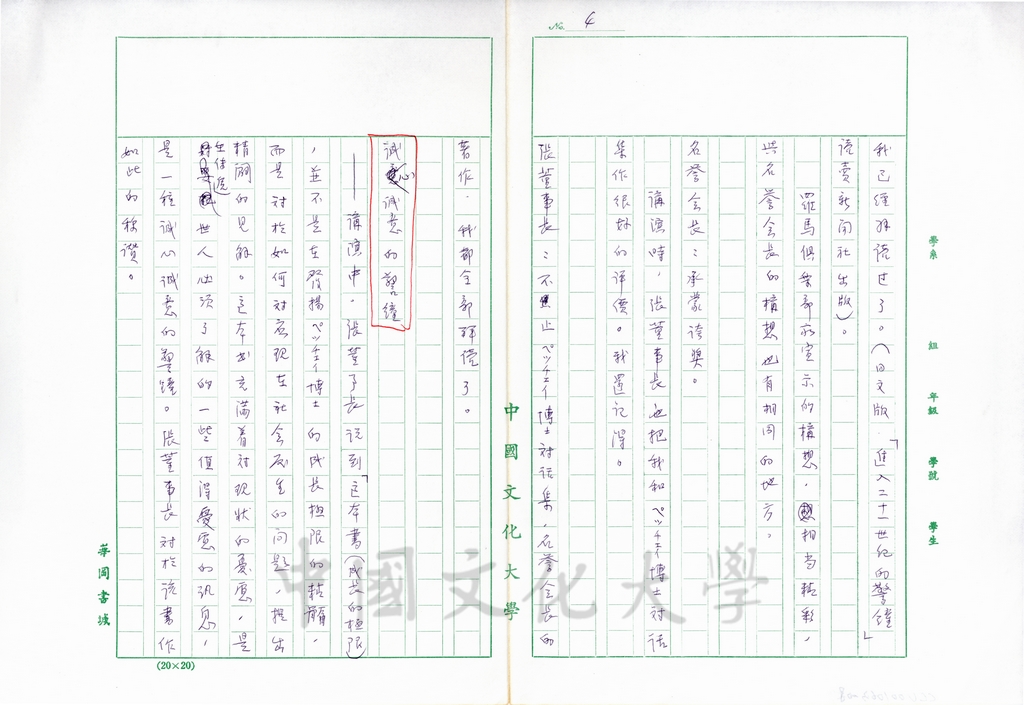 No. 4
學系 組 年級 學號 學生
我已經拜讀过了。(日文版.「進入二十一世紀的警鐘」
讀賣新聞社出版)。
羅馬俱樂部所宣示的構想,相当精彩,
與名誉会長的構想也有相同的地方。
名誉会長:承蒙誇獎。
講演時,張董事長也把我和ペッチェイ博士对话
集作很好的評價。我還记得。
張董事長:不止ペッチェイ博士对话集,名誉会長的
著作.我都全部拜读了。
誠心誠意的警鐘
——講演中.張董事長说到「这本書(成長的極限)
,並不是在發揚ペッチェイ博士的成長極限的精髓.
而是对於如何对应現在社会所产生的问題,提出
精闢的見解。这本書充滿着对現狀的憂慮,是
世人必须了解的一些值得憂慮的訊息,
是一種誠心誠意的警鐘。張董事長对於该書作
如此的稱讚。
中國文化大學
華岡書城
(20×20)
中國文化大學